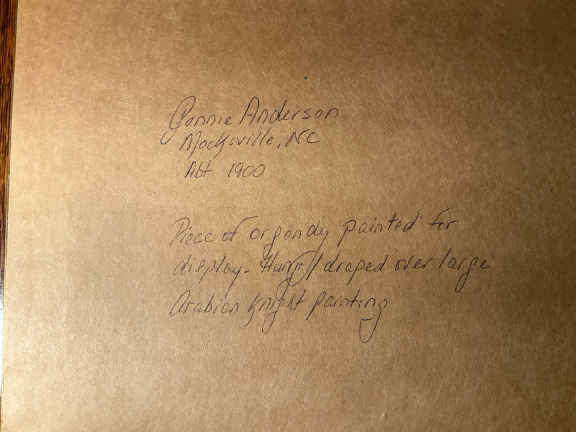 Jannie Anderson
Mocksville, NC
Abt 1900
Piece of organdy painted for
display. Hung / draped over large
Arabian Knight painting